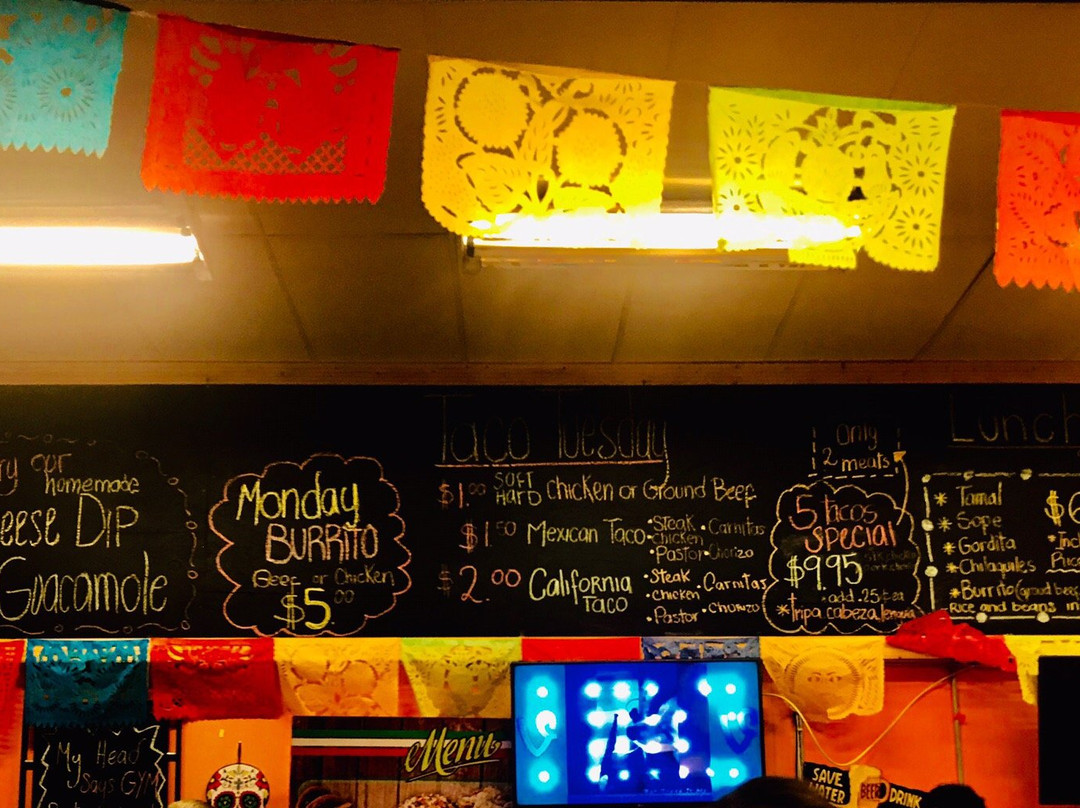 our
homemade
Dip
Guacamole
Monday
BURRITO
Beef or Chicken
$5.00
Taco Tuesday
$1.00 SOFT HARD Chicken or Ground Beef
$1.50 Mexican Taco
•Steak •Carnitas
•Chicken
•Pastor •Chorizo
$2.00 California Taco
•Steak
•Chicken •Carnitas
•Pastor
only
2 meats
5 Tacos
Special
$9.95
add .25 ea
*Tripa cabeza
Lunch
* Tamal
* Sope
* Gordita
* Chilaquiles
* Burrito (ground beef
Rice and beans in
$6
My Head
Says GYM
Menu
SAVE
WATER
BEER
DRINK